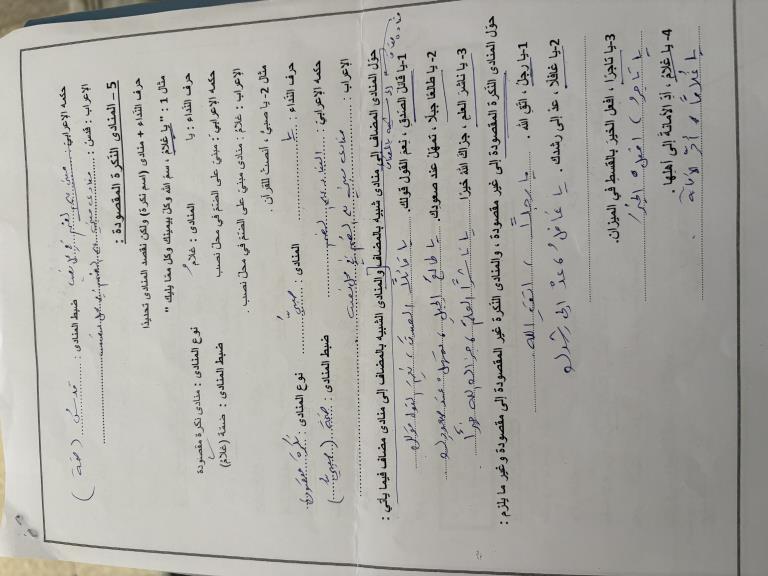 حكمه الإعرابي : مبني على الضم في محل نصب ضبط المنادى : قدسُ (ضمة)
الإعراب : قدس : منادى مبني على الضم في محل نصب
5 – المنادى النكرة المقصودة :
حرف النداء + منادى (اسم نكرة) ولكن نقصد المنادى تحديدا
مثال 1 : " يا غلامُ ، سم الله وكل بيمينك وكل مما يليك "
حرف النداء : يا المنادى : غلامُ نوع المنادى : منادى نكرة مقصودة
حكمه الإعرابي : مبني على الضم في محل نصب ضبط المنادى : ضمة (غلامُ)
الإعراب : غلامُ : منادى مبني على الضم في محل نصب .
مثال 2- يا صبيُّ ، أنصت للقرآن .
حرف النداء : يا المنادى : صبيُّ نوع المنادى : نكرة مقصودة
حكمه الإعرابي : البناء على الضم ضبط المنادى : ضمة (صبيُّ)
الإعراب : منادى مبني على الضم في محل نصب
حوّل المنادى المضاف إلى منادى شبيه بالمضاف والمنادى الشبيه بالمضاف إلى منادى مضاف فيما يأتي :
1- يا قائلَ الصدق ، نعم القول قولك . يا قائلاً الصدق ، نعم القول قولك
2- يا طالعًا جبلا ، تمهّل عند صعودك . يا طالعَ الجبل ، تمهل عند صعودك
3- يا ناشرَ العلم ، جزاك الله خيرًا . يا ناشرًا العلم ، جزاك الله خيرًا
حوّل المنادى النكرة المقصودة إلى غير مقصودة ، والمنادى النكرة غير المقصودة إلى مقصودة وغير ما يلزم :
1- يا رجلُ ، اتق الله . يا رجلاً ، اتق الله
2- يا غافلا ، عد إلى رشدك . يا غافلُ ، عد إلى رشدك
3- يا تاجرًا ، افعل الخير بالقسط في الميزان .
يا تاجرُ ، افعل الخير
4- يا غلامُ ، أدِّ الأمانة إلى أهلها .
يا غلامًا ، أدِّ الأمانة .